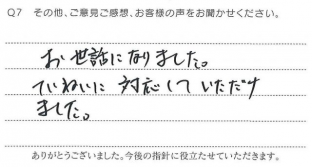 Q7 その他、ご意見ご感想、お客様の声をお聞かせください。
お世話になりました。
ていねいに対応していただけ
ました。
ありがとうございました。今後の指針に役立たせていただきます。